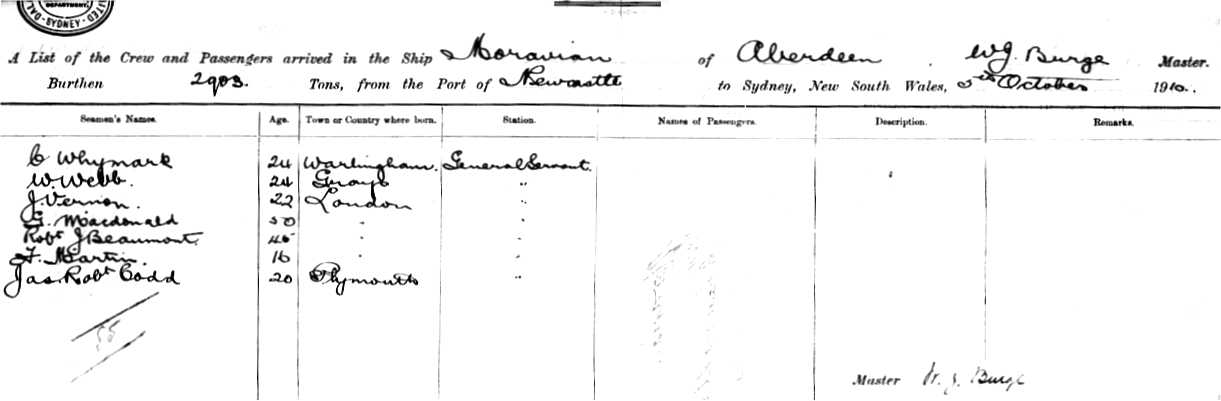 DEPARTMENT.
SYDNEY
A List of the Crew and Passengers arrived in the Ship Moravian of Aberdeen, W.J. Burge Master.
Burthen 2903. Tons, from the Port of Newcastle to Sydney, New South Wales, 5th October 1910.
Seamen's Names. Age. Town or Country where born. Station. Names of Passengers. Description. Remarks.
C Whymark 24 Warlingham. General Servant.
W. Webb. 24 Grays "
J. Vernon. 22 London "
G. Macdonald 50 " "
Robt J Beaumont. 45 " "
F. Martin. 16 " "
Jas. Robt Codd 20 Plymouth "
55
Master W. J. Burge